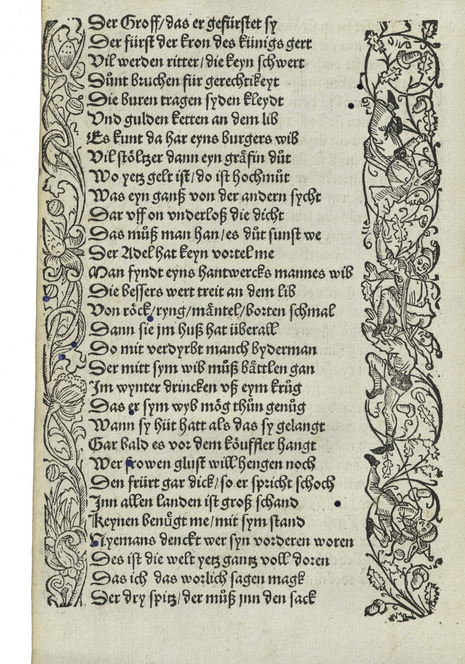 Der Groff/das er gefürstet sy
Der fürst der kron des künigs gert
Vil werden ritter/die keyn schwert
Dünt bruchen für gerechtikeyt
Die buren tragen syden kleydt
Vnd gulden ketten an dem lib
Es kunt da har eyns burgers wib
Vil stöltzer dann eyn gräfin düt
Wo yetz gelt ist/do ist hochmüt
Was eyn ganß von der andern sycht
Dar vff on vnderloß die dicht
Das müß man han/es düt sunst we
Der Adel hat keyn vortel me
Man fyndt eyns hantwercks mannes wib
Die bessers wert treit an dem lib
Von röck/ryng/mäntel/borten schmal
Dann sie jm huß hat überall
Do mit verdyrbt manch byderman
Der mitt sym wib müß bättlen gan
Jm wynter drincken vß eym krüg
Das er sym wyb mög thůn genüg
Wann sy hüt hatt als das sy gelangt
Gar bald es vor dem köuffler hangt
Wer frowen glust will hengen noch
Den frürt gar dick/so er spricht schoch
Jnn allen landen ist groß schand
Keynen benůgt me/mit sym stand
Nyemans denckt wer syn vorderen woren
Des ist die welt yetz gantz voll doren
Das ich das worlich sagen magk
Der dry spitz/der můß jnn den sack